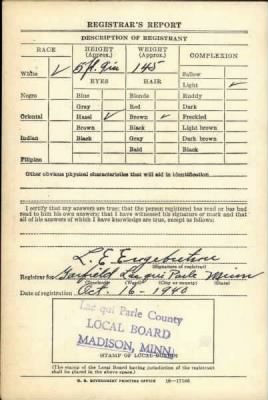 REGISTRAR'S REPORT
DESCRIPTION OF REGISTRANT
RACE HEIGHT (Approx.) WEIGHT (Approx.) COMPLEXION
White ✓ 5 ft. 9 in 145 Sallow
EYES HAIR Light ✓
Negro Blue Blonde Ruddy
Gray Red Dark
Oriental Hazel ✓ Brown ✓ Freckled
Brown Black Light brown
Indian Black Gray Dark brown
Bald Black
Filipino
Other obvious physical characteristics that will aid in identification
I certify that my answers are true; that the person registered has read or has had
read to him his own answers; that I have witnessed his signature or mark and that
all of his answers of which I have knowledge are true, except as follows:
L. E. Engebretson
(Signature of registrar)
Registrar for Garfield Lac qui Parle Minn
(Precinct) (Ward) (City or county) (State)
Date of registration Oct. 16 - 1940
Lac qui Parle County
LOCAL BOARD
MADISON, MINN.
(STAMP OF LOCAL BOARD)
(The stamp of the Local Board having jurisdiction of the registrant
shall be placed in the above space.)
U. S. GOVERNMENT PRINTING OFFICE 16—17105